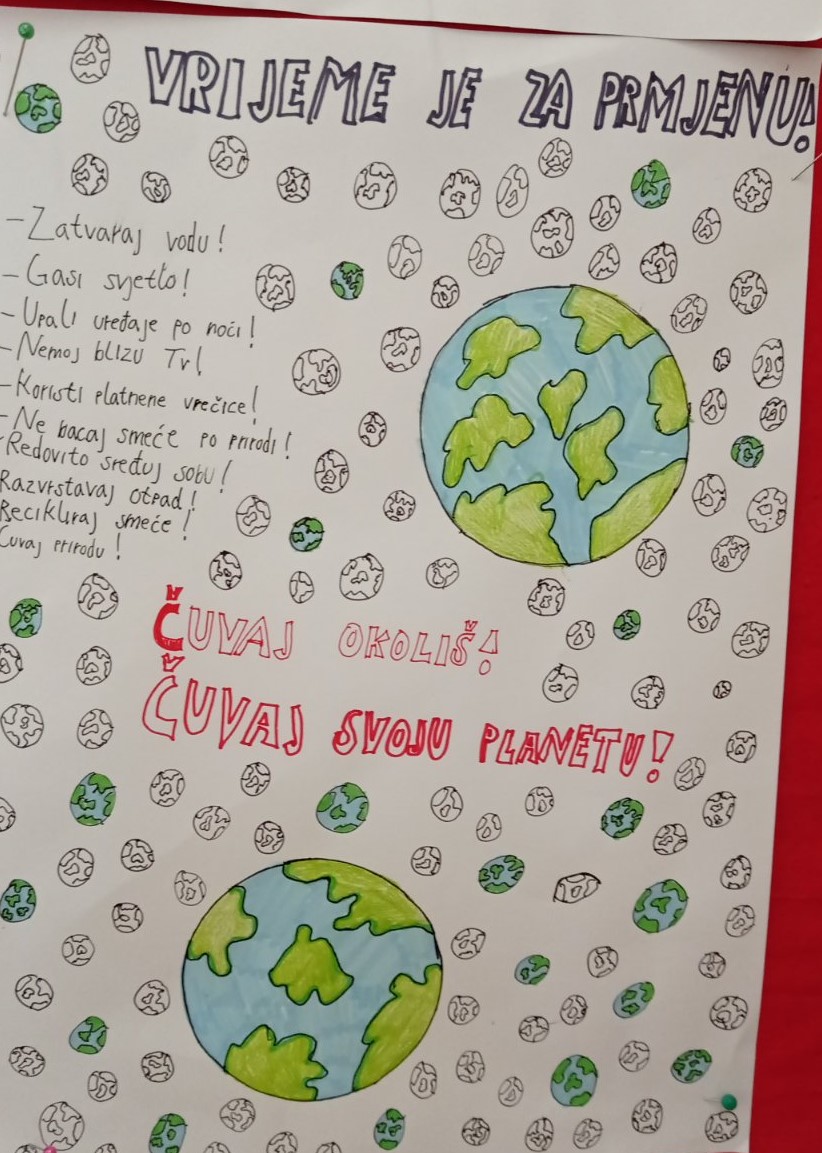 VRIJEME JE ZA PRMJENU!
- Zatvaraj vodu!
- Gasi svjetlo!
- Upali uređaje po noći!
- Nemoj blizu Tv!
- Koristi platnene vrećice!
- Ne bacaj smeće po prirodi!
- Redovito sređuj sobu!
Razvrstavaj otpad!
Recikliraj smeće!
Čuvaj prirodu!
ČUVAJ OKOLIŠ!
ČUVAJ SVOJU PLANETU!